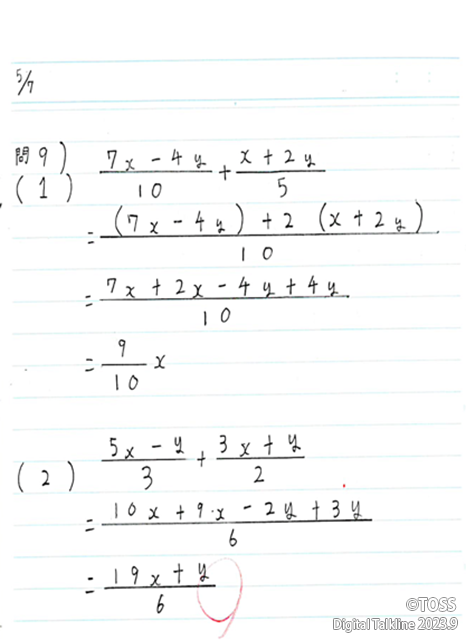 5/7
問9)
(1) (7x - 4y)/10 + (x + 2y)/5
= ((7x - 4y) + 2 (x + 2y))/10
= (7x + 2x - 4y + 4y)/10
= 9/10 x
(2) (5x - y)/3 + (3x + y)/2
= (10x + 9x - 2y + 3y)/6
= (19x + y)/6
©TOSS
Digital Talkline 2023.9